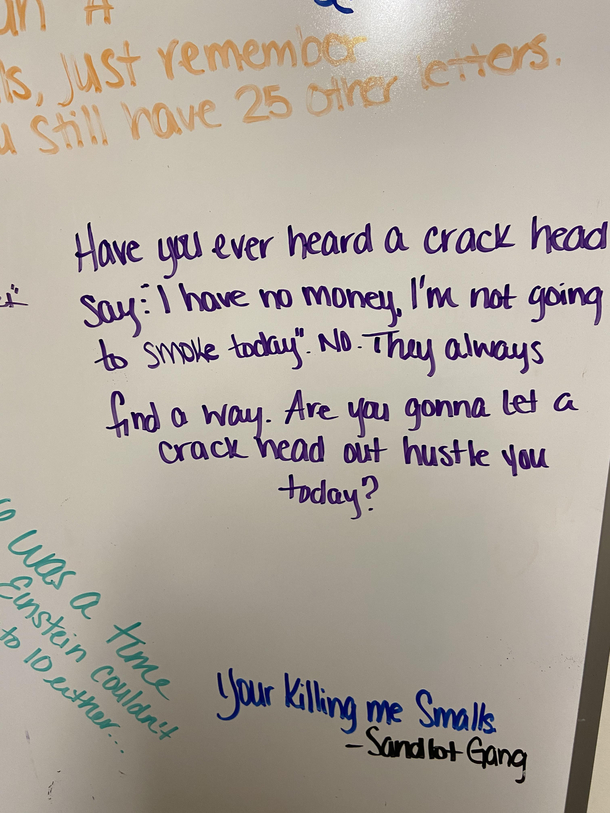 an A
ls, just remember
u still have 25 other letters.
Have you ever heard a crack head
say: "I have no money, I'm not going
to smoke today". No. They always
find a way. Are you gonna let a
crack head out hustle you
today?
was a time
Einstein couldn't
to 10 either...
Your Killing me Smalls.
- Sandlot Gang